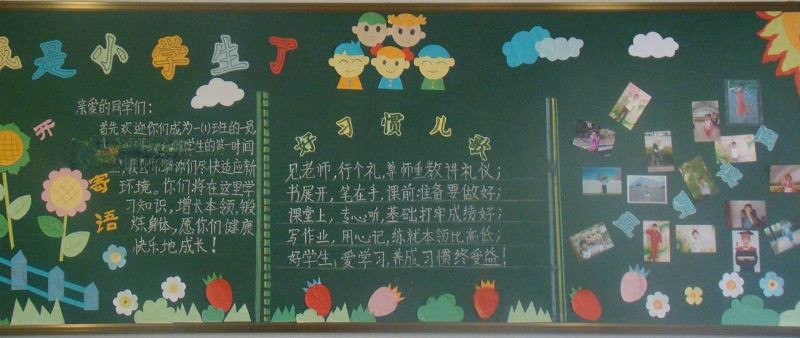 我是小学生了
亲爱的同学们：
首先欢迎你们成为一(1)班的一员，
学生的第一时间
你们尽快适应新
环境。你们将在这里学
习知识，增长本领，锻
炼身体，愿你们健康
快乐地成长！
开
寄
语
好习惯儿歌
见老师，行个礼，尊师重教讲礼仪；
书展开，笔在手，课前准备要做好；
课堂上，专心听，基础打牢成绩好；
写作业，用心记，练就本领比高低；
好学生，爱学习，养成习惯终受益！